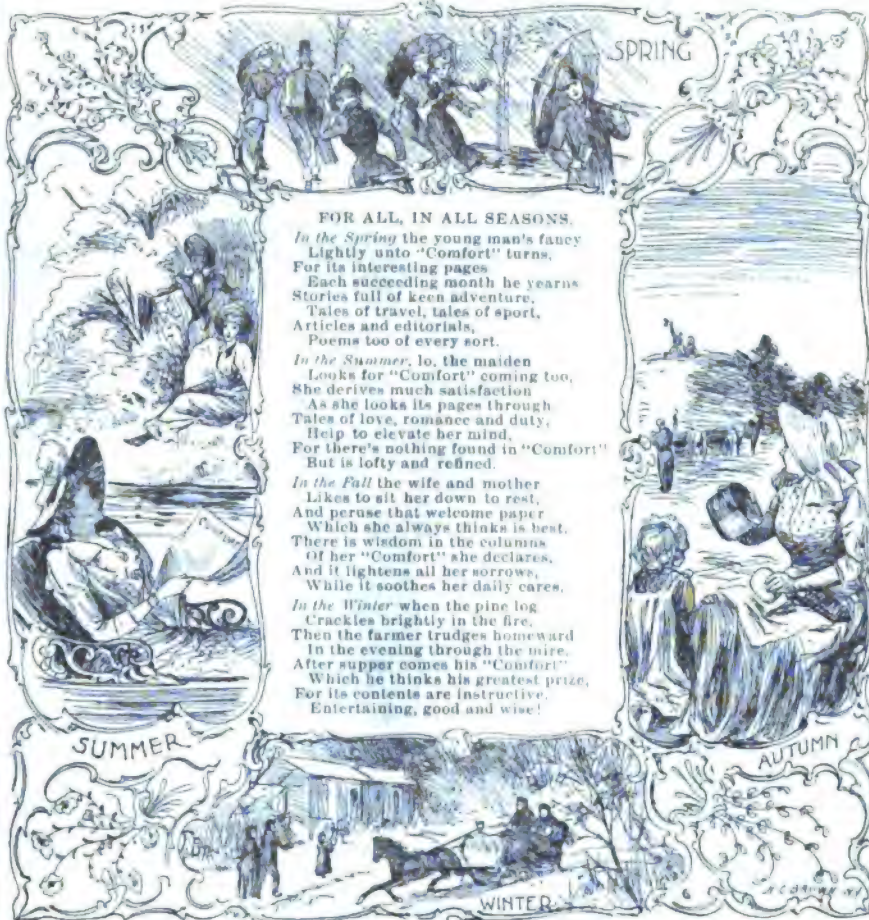 SPRING
FOR ALL, IN ALL SEASONS.
In the Spring the young man's fancy
Lightly unto "Comfort" turns,
For its interesting pages
Each succeeding month he yearns
Stories full of keen adventure,
Tales of travel, tales of sport,
Articles and editorials,
Poems too of every sort.
In the Summer, lo, the maiden
Looks for "Comfort" coming too,
She derives much satisfaction
As she looks its pages through
Tales of love, romance and duty,
Help to elevate her mind,
For there's nothing found in "Comfort"
But is lofty and refined.
In the Fall the wife and mother
Likes to sit her down to rest,
And peruse that welcome paper
Which she always thinks is best.
There is wisdom in the columns
Of her "Comfort" she declares,
And it lightens all her sorrows,
While it soothes her daily cares.
In the Winter when the pine log
Crackles brightly in the fire,
Then the farmer trudges homeward
In the evening through the mire,
After supper comes his "Comfort"
Which he thinks his greatest prize,
For its contents are instructive,
Entertaining, good and wise!
SUMMER
AUTUMN
WINTER